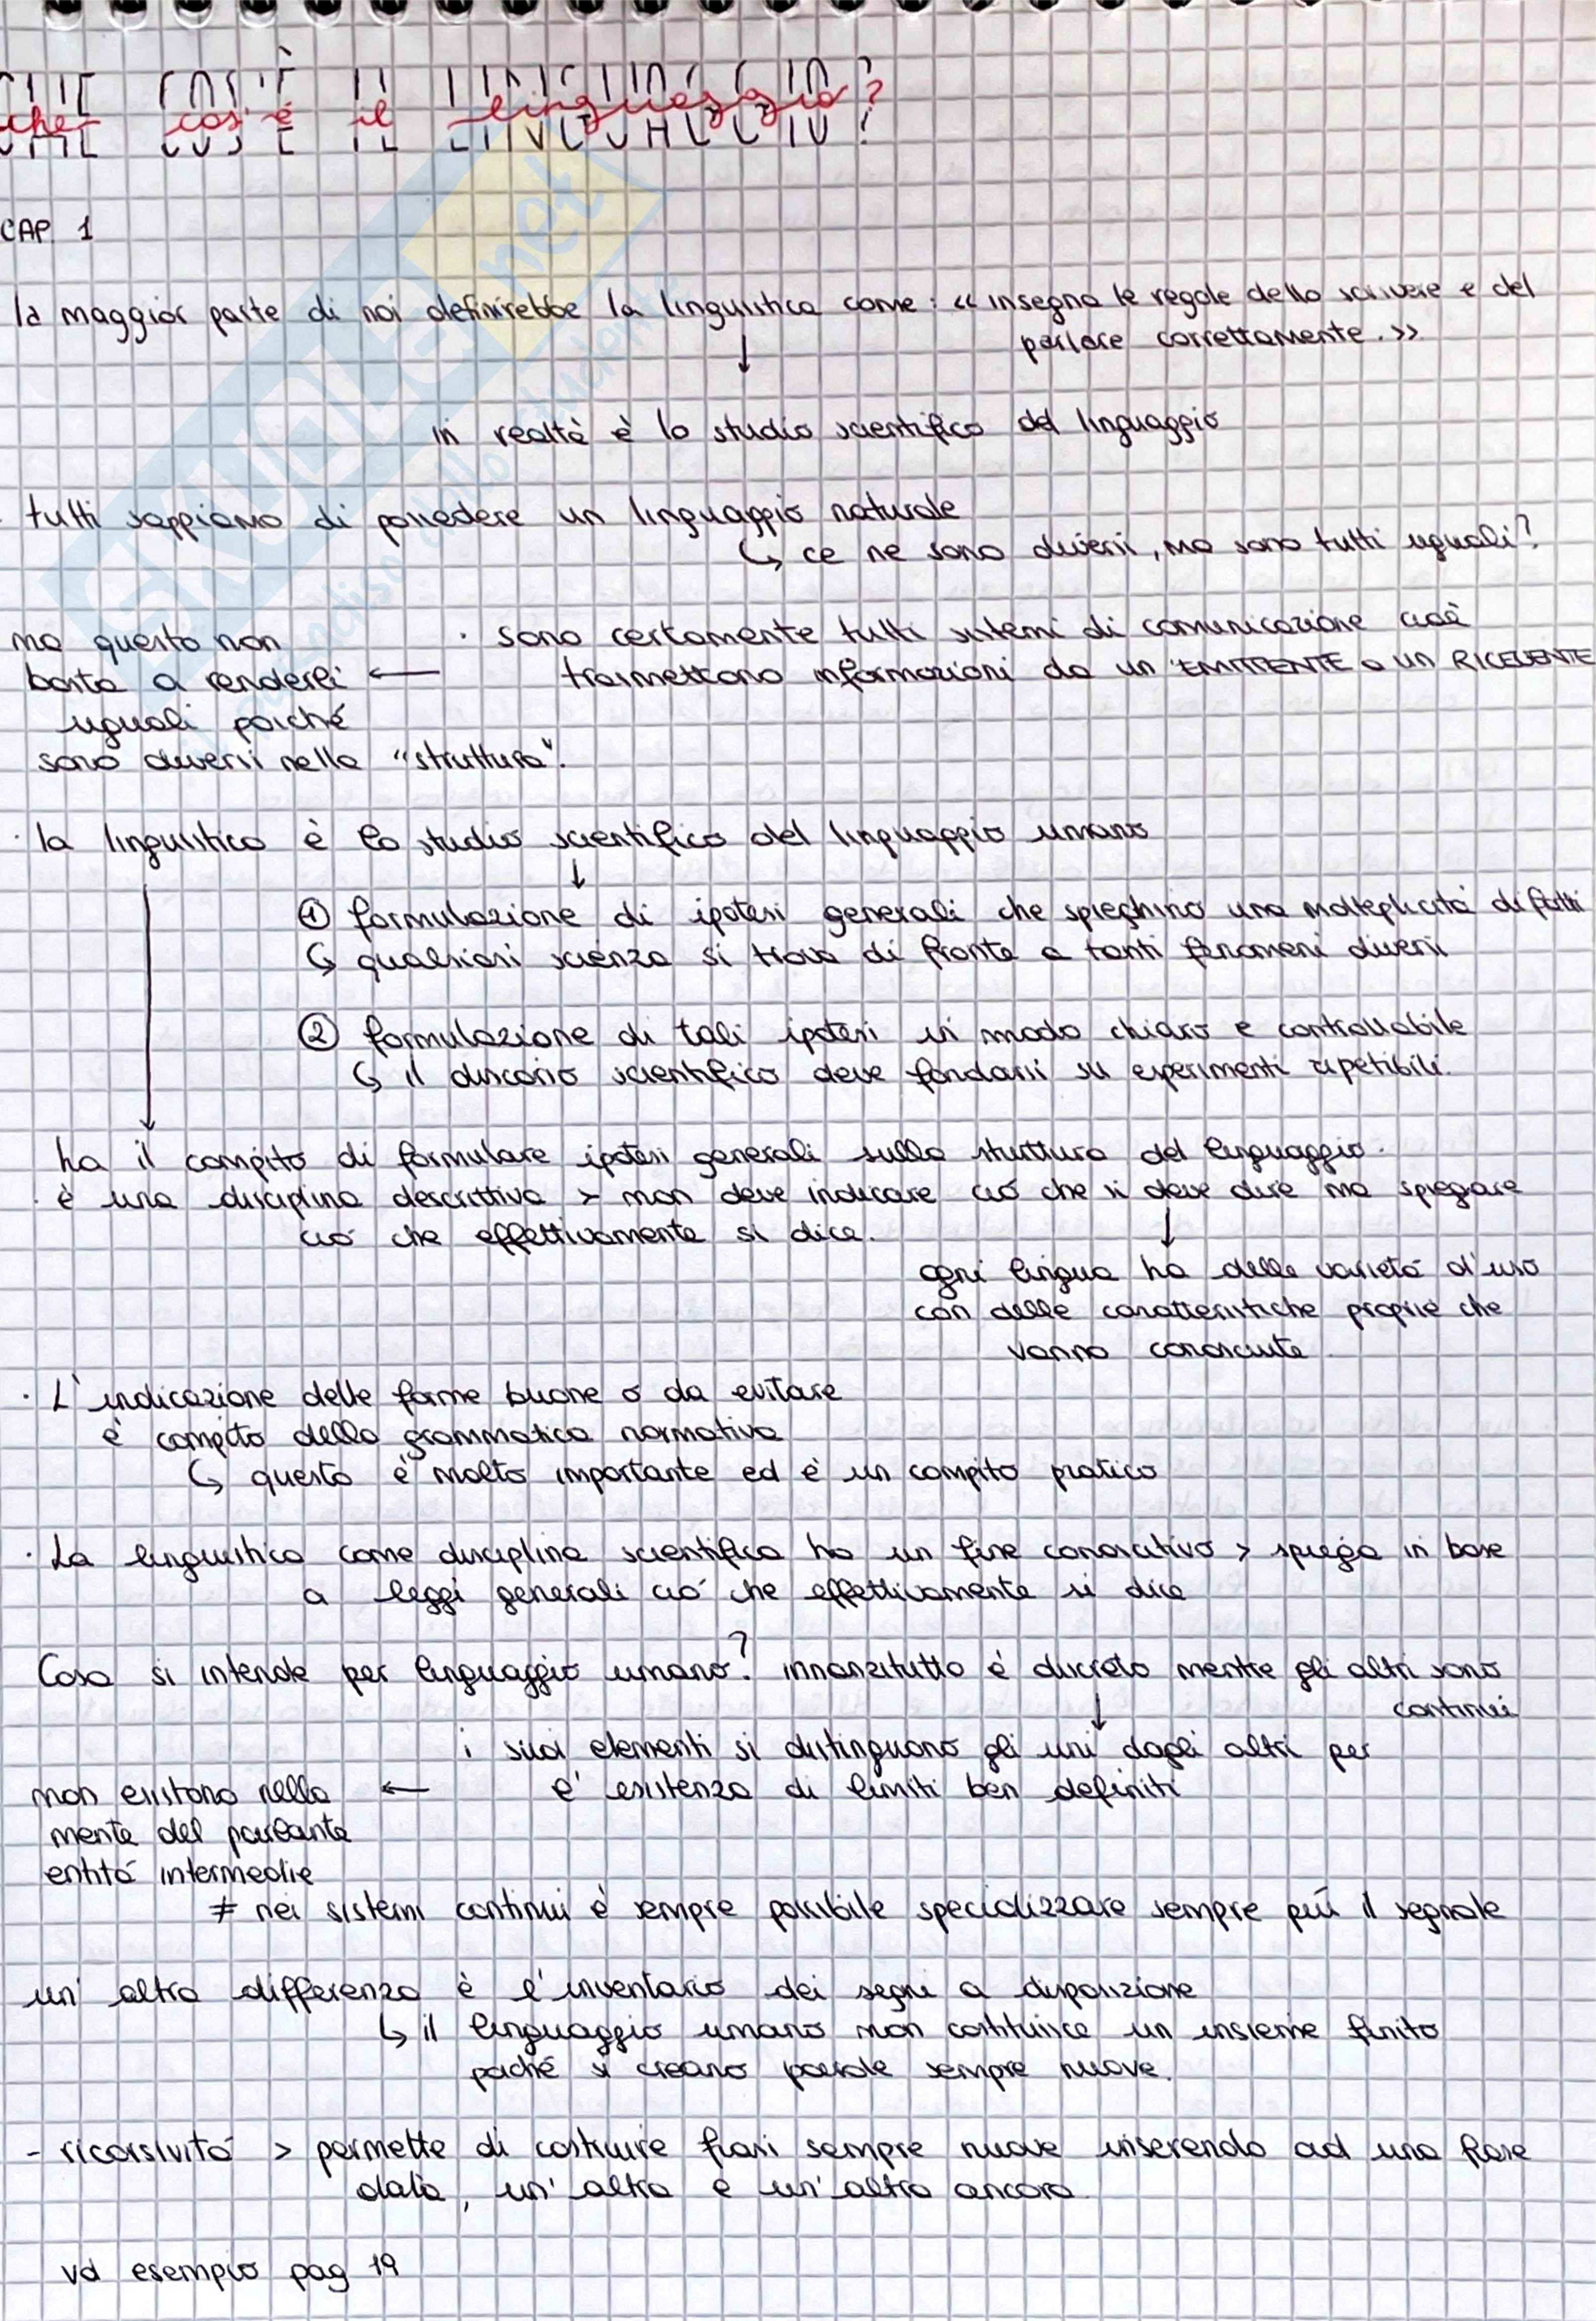 che cos'è il linguaggio?
CAP 1
la maggior parte di noi definirebbe la linguistica come: << insegna le regole dello scrivere e del
parlare correttamente. >>
↓
in realtà è lo studio scientifico del linguaggio
· tutti sappiamo di possedere un linguaggio naturale
↳ ce ne sono diversi, ma sono tutti uguali?
· sono certamente tutti sistemi di comunicazione cioè
trasmettono informazioni da un EMITTENTE a un RICEVENTE
ma questo non
basta a renderli ←
uguali poiché
sono diversi nella "struttura".
· la linguistica è lo studio scientifico del linguaggio umano
↓
① formulazione di ipotesi generali che spieghino una molteplicità di fatti
↳ qualsiasi scienza si trova di fronte a tanti fenomeni diversi
② formulazione di tali ipotesi in modo chiaro e controllabile
↳ il discorso scientifico deve fondarsi su esperimenti ripetibili.
ha il compito di formulare ipotesi generali sulla struttura del linguaggio.
· è una disciplina descrittiva > non deve indicare ciò che si deve dire ma spiegare
ciò che effettivamente si dice.
↓
ogni lingua ha delle varietà d'uso
con delle caratteristiche proprie che
vanno conosciute.
· L'indicazione delle forme buone o da evitare
è compito della grammatica normativa
↳ questo è molto importante ed è un compito pratico
· La linguistica come disciplina scientifica ha un fine conoscitivo > spiega in base
a leggi generali ciò che effettivamente si dice
Cosa si intende per linguaggio umano? innanzitutto è discreto mentre gli altri sono
continui
↓
i suoi elementi si distinguono gli uni dagli altri per
l'esistenza di limiti ben definiti
non esistono nella ←
mente del parlante
entità intermedie
≠ nei sistemi continui è sempre possibile specializzare sempre più il segnale
un'altra differenza è l'inventario dei segni a disposizione
↳ il linguaggio umano non costituisce un insieme finito
poiché si creano parole sempre nuove.
- ricorsività > permette di costruire frasi sempre nuove inserendo ad una frase
data, un'altra e un'altra ancora.
vd esempio pag 19
SKUOLA.net